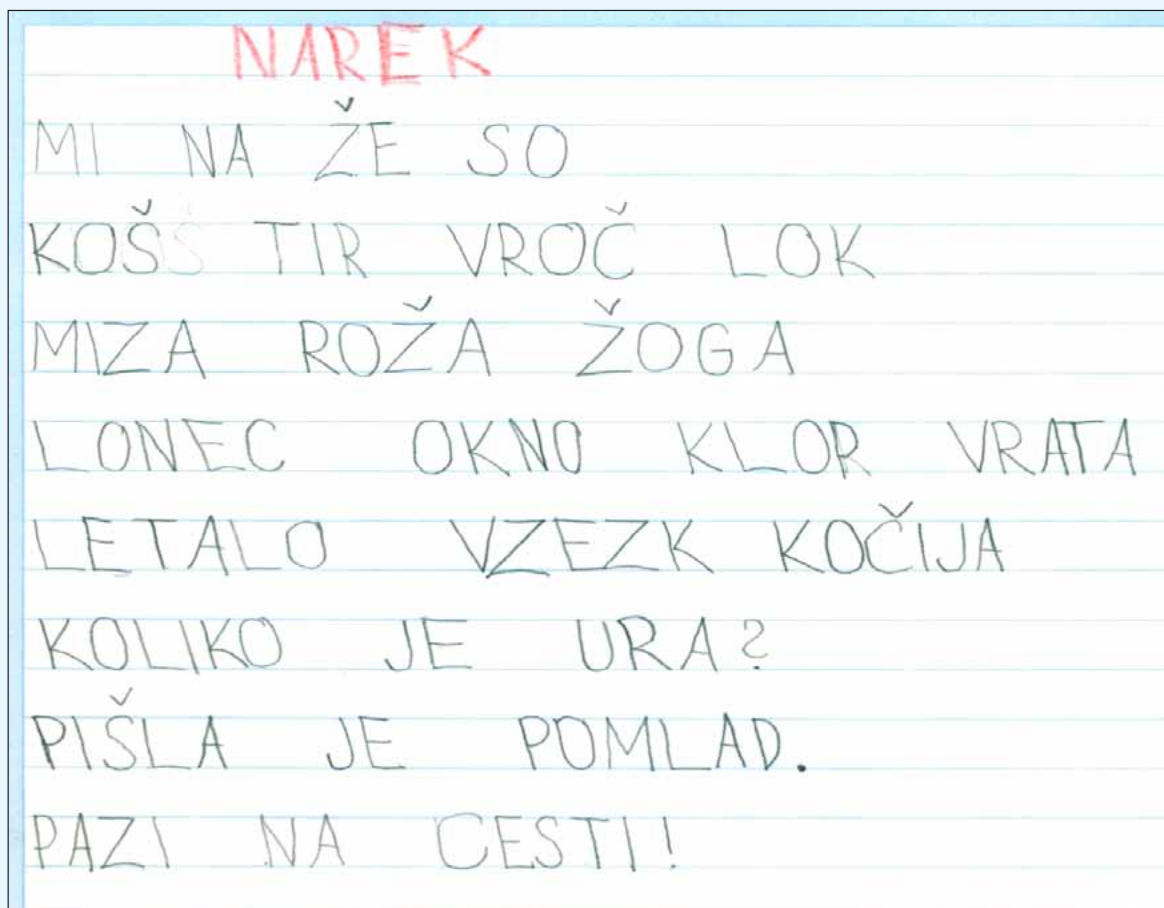 NAREK
MI NA ŽE SO
KOŠŠ TIR VROČ LOK
MIZA ROŽA ŽOGA
LONEC OKNO KLOR VRATA
LETALO VZEZK KOČIJA
KOLIKO JE URA?
PIŠLA JE POMLAD.
PAZI NA CESTI!